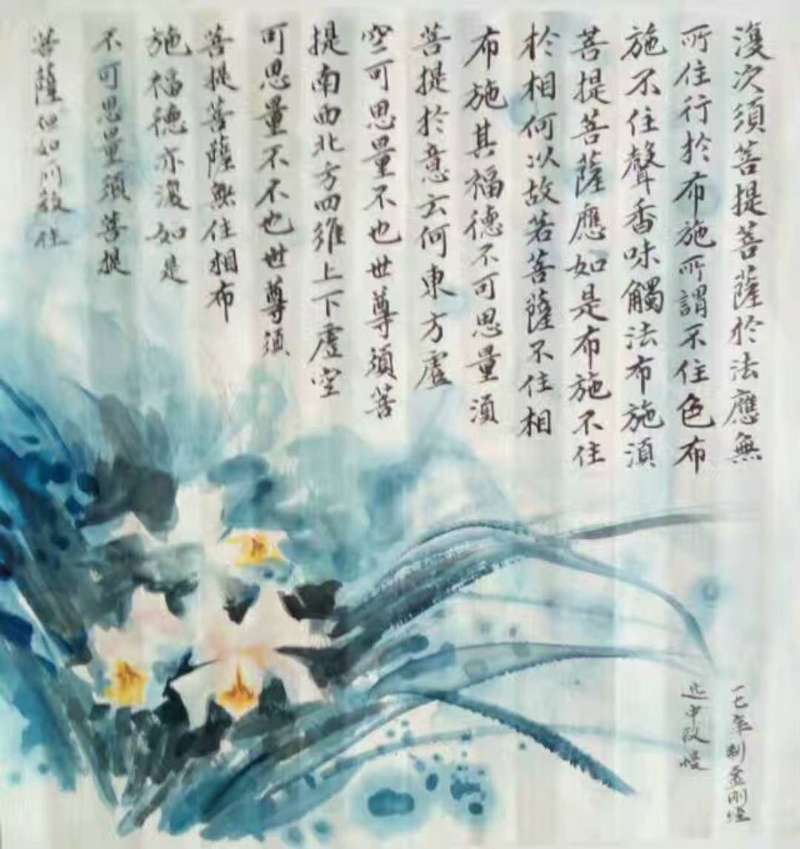 復次須菩提菩薩於法應無
所住行於布施所謂不住色布
施不住聲香味觸法布施須
菩提菩薩應如是布施不住
於相何以故若菩薩不住相
布施其福德不可思量須
菩提於意云何東方虛
空可思量不也世尊須菩
提南西北方四維上下虛空
可思量不不也世尊須
菩提菩薩無住相布
施福德亦復如是
不可思量須菩提
菩薩但如所教住
一七年制金刚经